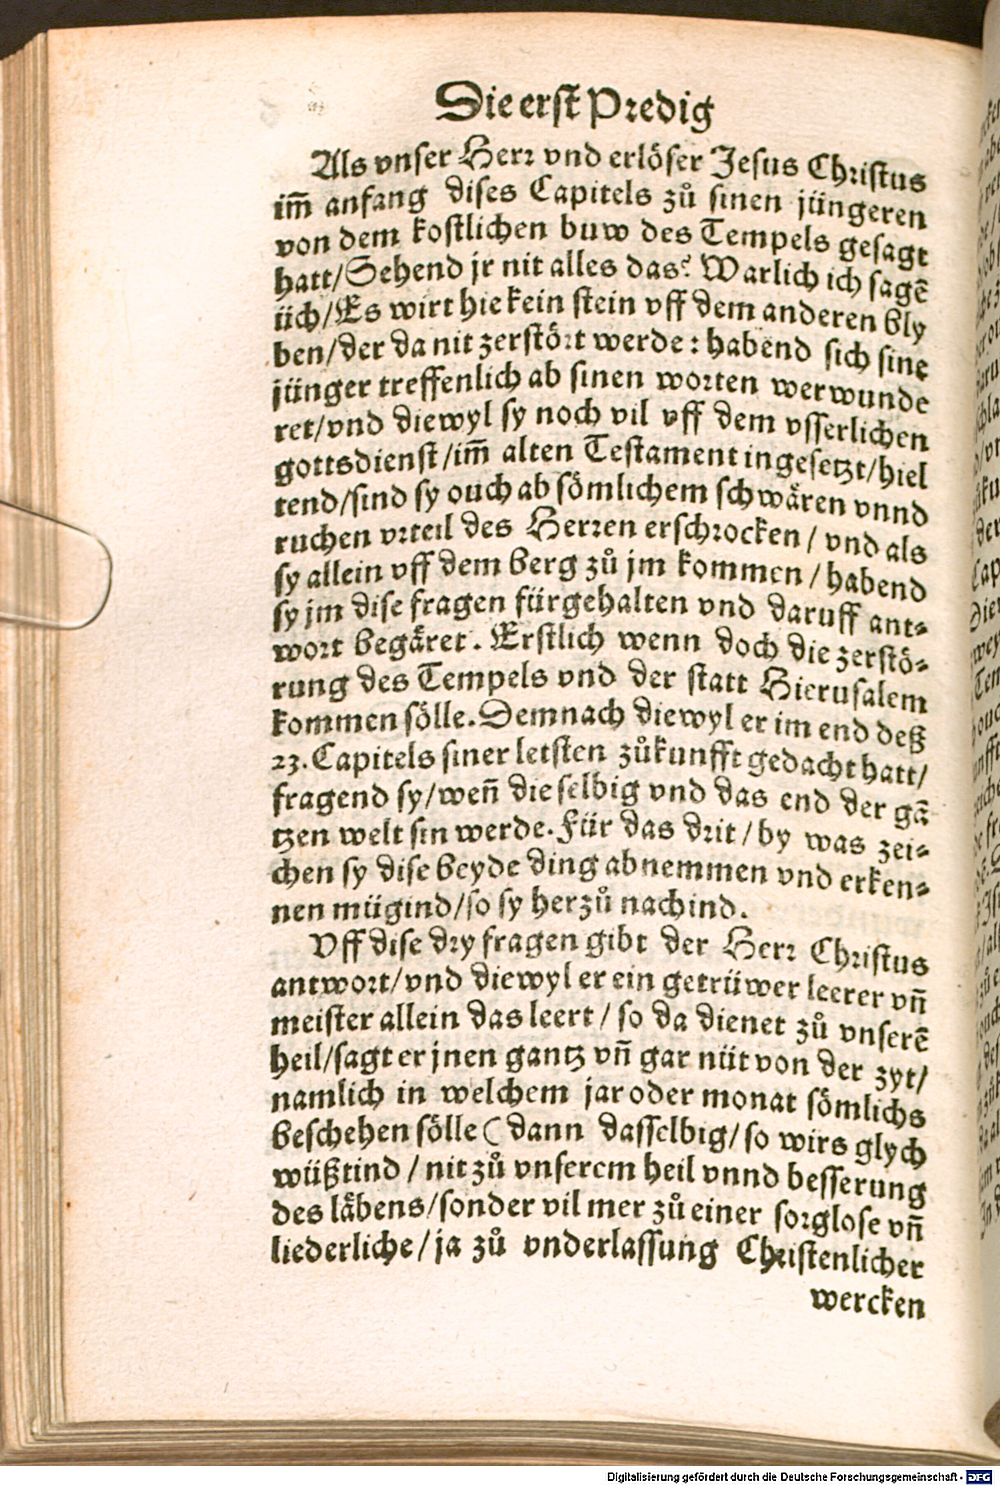 Die erst Predig
Als vnser Herr vnd erlöser Jesus Christus
im̄ anfang dises Capitels zů sinen jüngeren
von dem kostlichen buw des Tempels gesagt
hatt/Sehend jr nit alles das? Warlich ich sagē
üch/Es wirt hie kein stein vff dem anderen bly
ben/der da nit zerstört werde: habend sich sine
jünger treffenlich ab sinen worten werwunde
ret/vnd diewyl sy noch vil vff dem vsserlichen
gottsdienst/im̄ alten Testament ingesetzt/hiel
tend/sind sy ouch ab sömlichem schwären vnnd
ruchen vrteil des Herren erschrocken/ vnd als
sy allein vff dem berg zů jm kommen/ habend
sy jm dise fragen fürgehalten vnd daruff ant-
wort begäret. Erstlich wenn doch die zerstö-
rung des Tempels vnd der statt Hierusalem
kommen sölle. Demnach diewyl er im end deß
23. Capitels siner letsten zůkunfft gedacht hatt/
fragend sy/weñ die selbig vnd das end der gā
tzen welt sin werde. Für das drit/ by was zei-
chen sy dise beyde ding abnemmen vnd erken-
nen mügind/so sy herzů nachind.
Vff dise dry fragen gibt der Herr Christus
antwort/vnd diewyl er ein getrüwer leerer vñ
meister allein das leert/ so da dienet zů vnserē
heil/sagt er jnen gantz vñ gar nüt von der zyt/
namlich in welchem jar oder monat sömlichs
beschehen sölle ( dann dasselbig/ so wirs glych
wüßtind/ nit zů vnserem heil vnnd besserung
des läbens/sonder vil mer zů einer sorglose vñ
liederliche/ ja zů vnderlassung Christenlicher
wercken
Digitalisierung gefördert durch die Deutsche Forschungsgemeinschaft - DFG